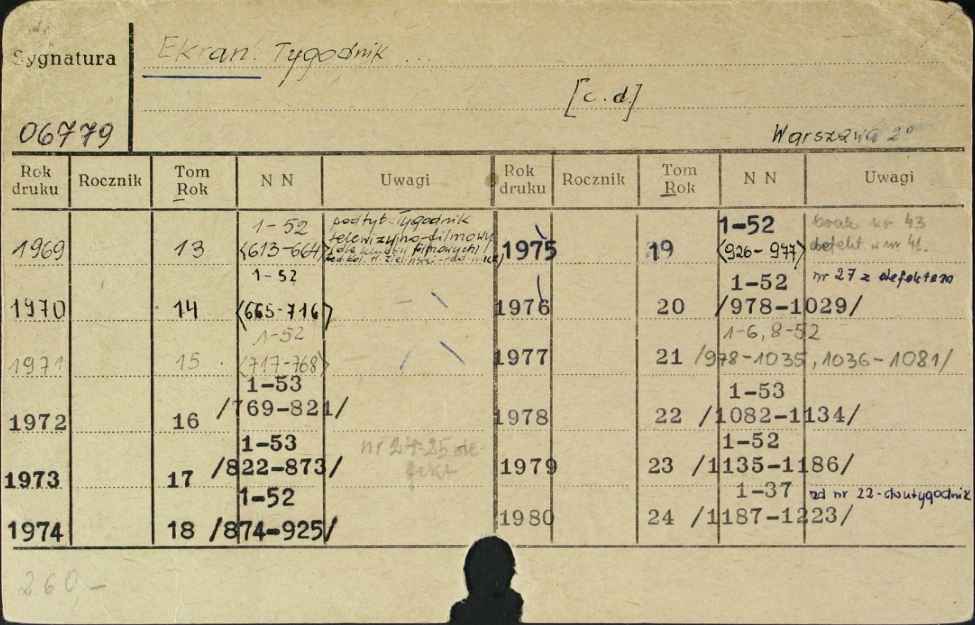 Sygnatura
Ekran. Tygodnik ...
[c.d.]
06779
Warszawa 2°
Rok druku Rocznik Tom Rok N N Uwagi Rok druku Rocznik Tom Rok N N Uwagi
1969 13 1-52 <613-664> podtyt. Tygodnik telewizyjno-filmowy
1970 14 1-52 <665-716>
1971 15 1-52 <717-768>
1972 16 1-53 /769-821/
1973 17 1-53 /822-873/ nr 24-25 defekt
1974 18 1-52 /874-925/
1975 19 1-52 <926-977> brak nr 43 defekt w nr 41.
1976 20 1-52 /978-1029/ nr 27 z defektem
1977 21 1-6, 8-52 /978-1035, 1036-1081/
1978 22 1-53 /1082-1134/
1979 23 1-52 /1135-1186/
1980 24 1-37 /1187-1223/ od nr 22-dwutygodnik
260,-